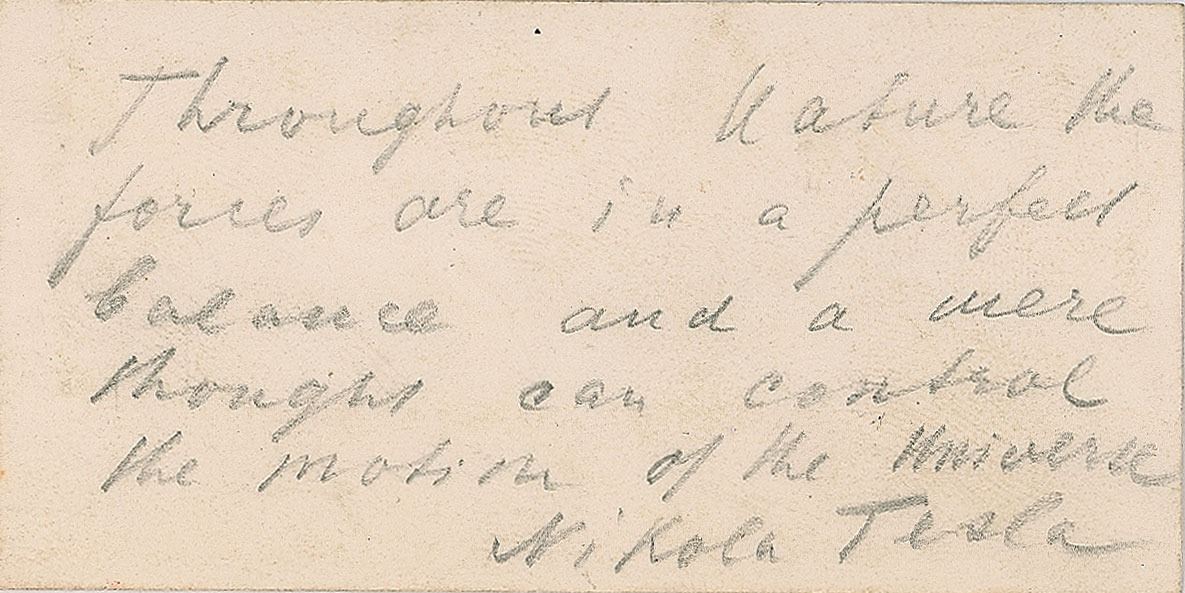 Throughout Nature the
forces are in a perfect
balance and a mere
thought can control
the motion of the Universe
Nikola Tesla